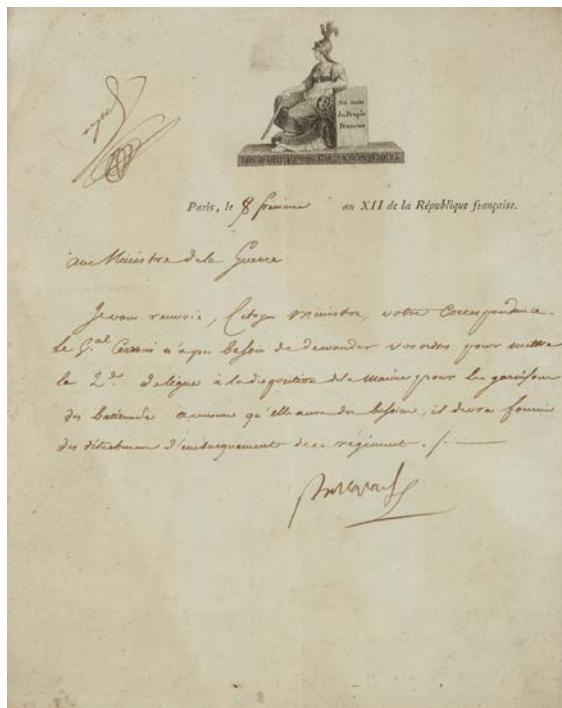 Au nom
du Peuple
Français
Paris, le 8 frimaire an XII de la République française.
au Ministre de la Guerre
Je vous renvoie, Citoyen ministre, votre correspondance.
le G.al n'a pas besoin de demander vos ordres pour mettre
la 2.de de ligne à la disposition de la Marine pour les garnisons
des batiments a mesure qu'elle aura des besoins, il devra fournir
des détachemens d'embarquement de ce régiment ./.